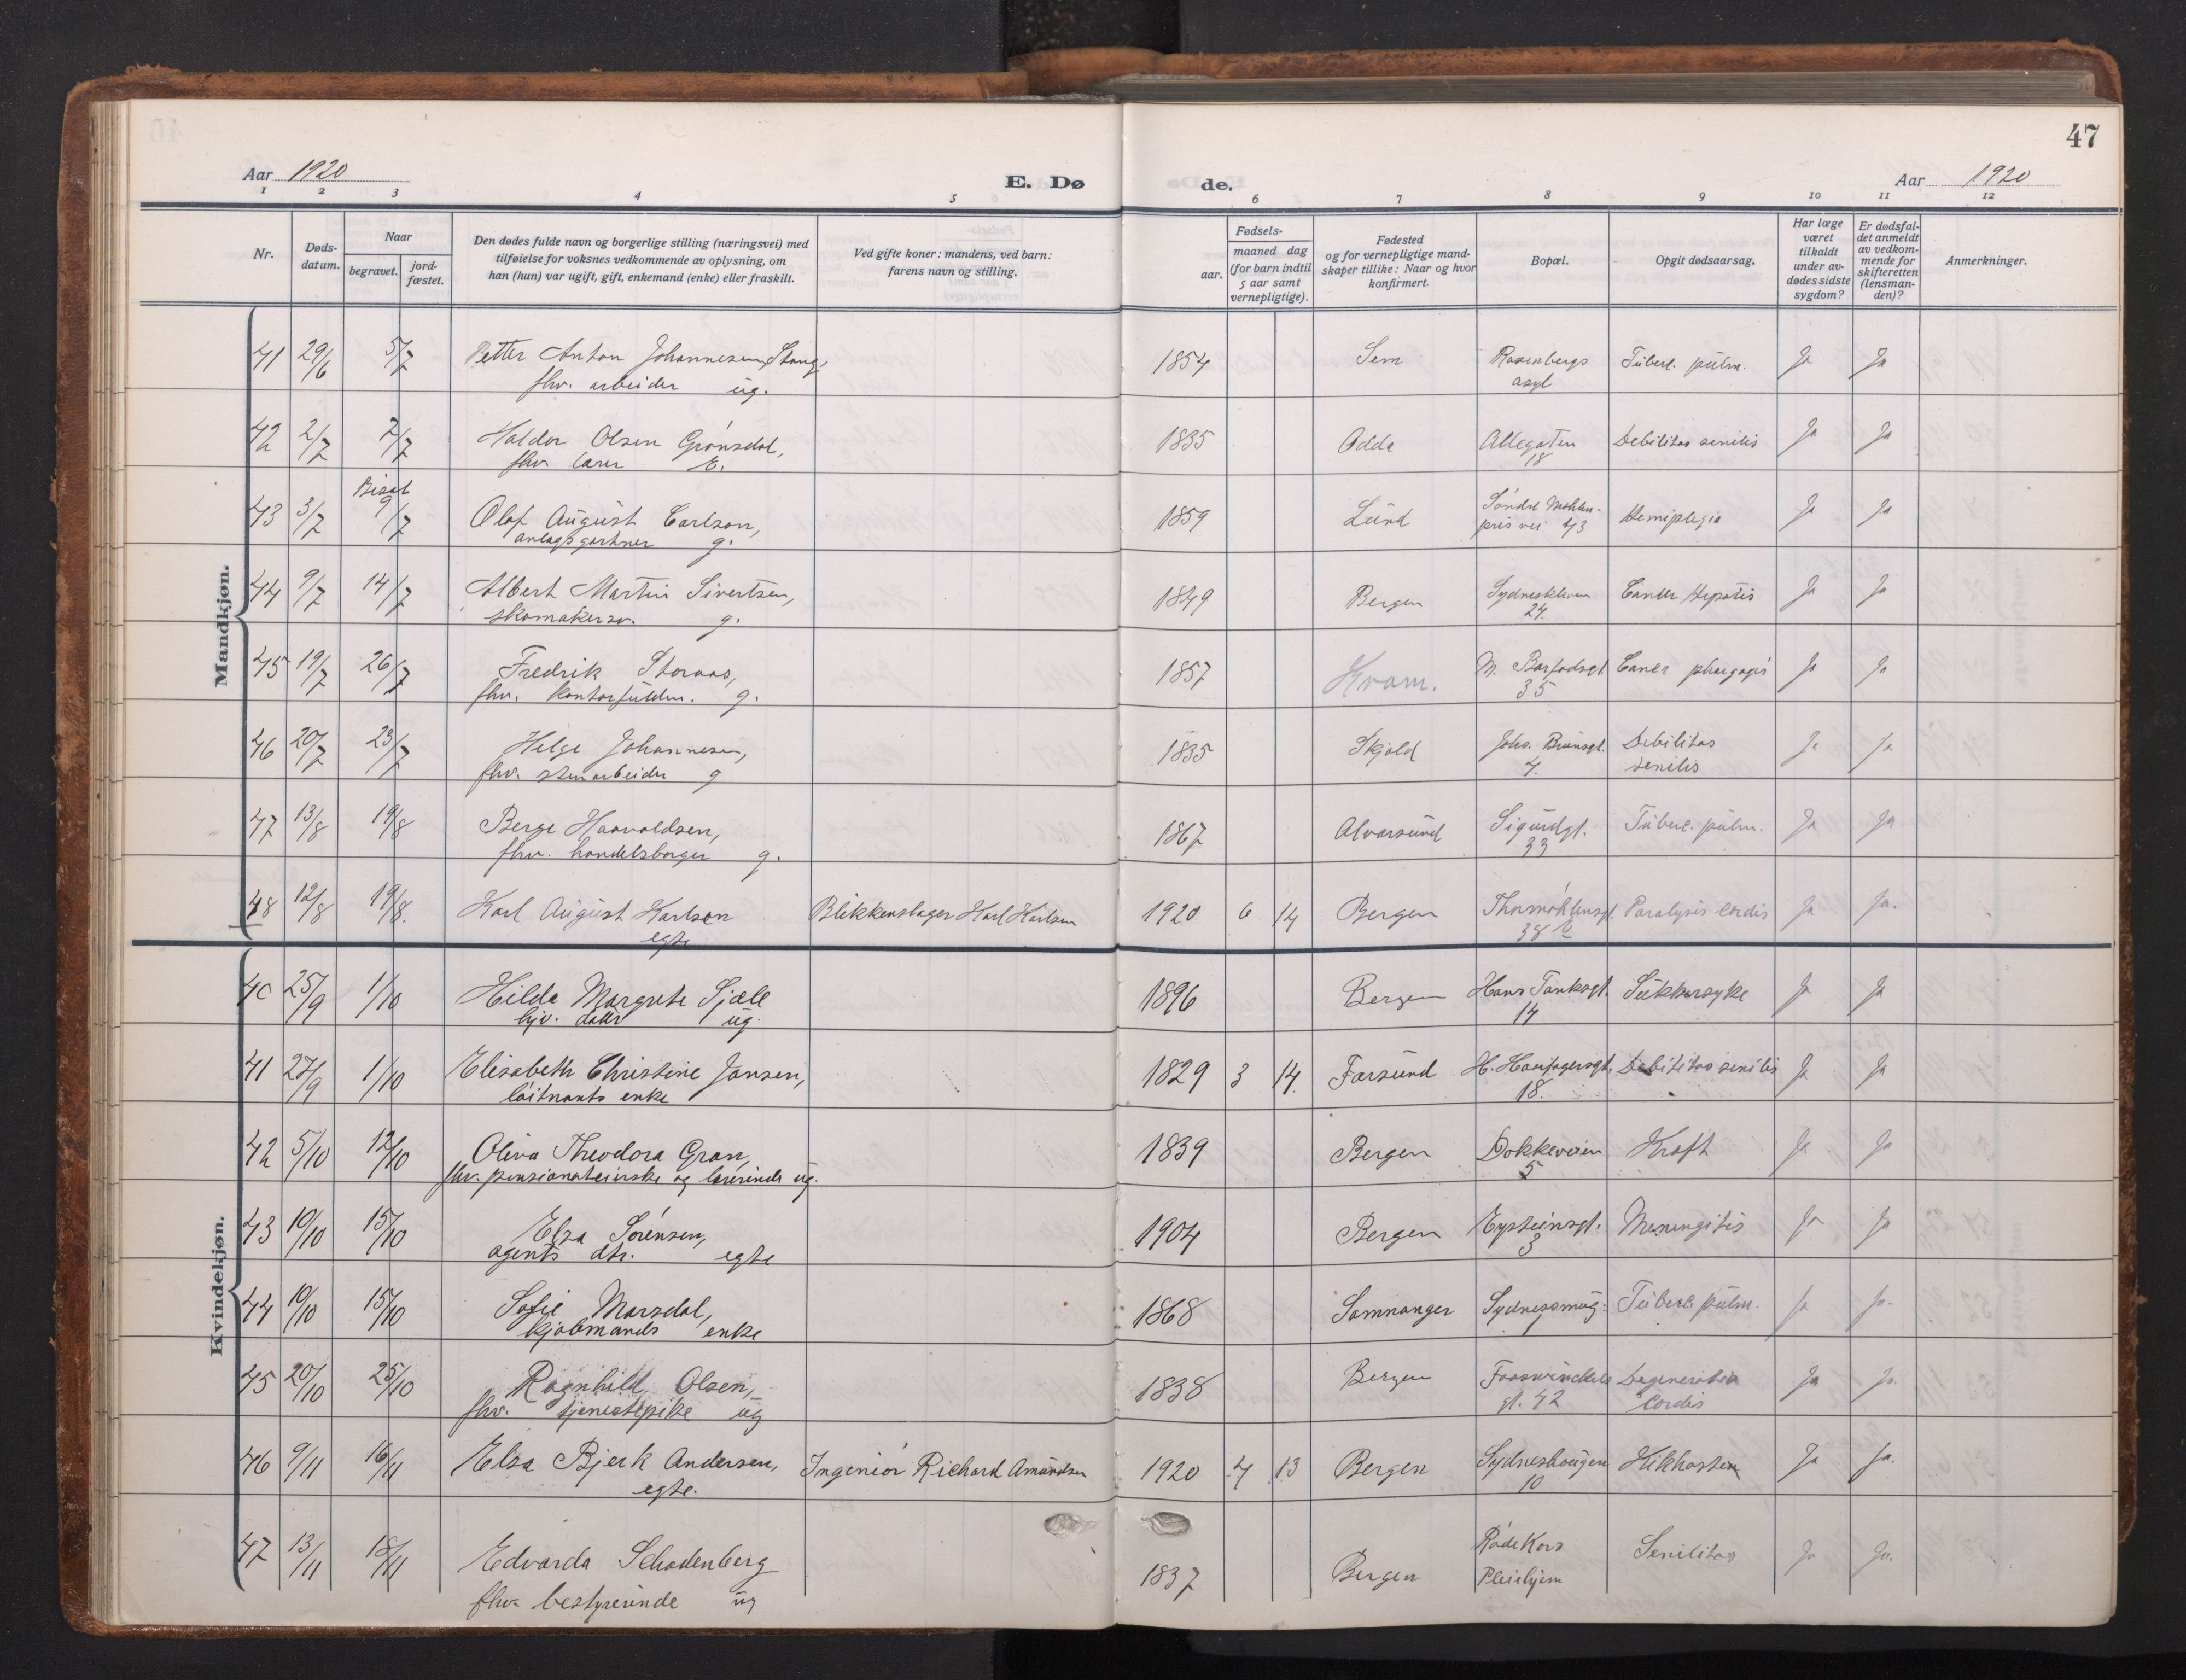 47
Aar 1920
E. Dø de.
Aar 1920
1 2 3 4 5 6 7 8 9 10 11 12
Nr.
Døds-
datum.
Naar
begravet.
jord-
fæstet.
Den dødes fulde navn og borgerlige stilling (næringsvei) med
tilføielse for voksnes vedkommende av oplysning, om
han (hun) var ugift, gift, enkemand (enke) eller fraskilt.
Ved gifte koner: mandens, ved barn:
farens navn og stilling.
Fødsels-
aar.
maaned dag
(for barn indtil
5 aar samt
vernepligtige).
Fødested
og for vernepligtige mand-
skaper tillike: Naar og hvor
konfirmert.
Bopæl.
Opgit dødsaarsag.
Har læge
været
tilkaldt
under av-
dødes sidste
sygdom?
Er dødsfal-
det anmeldt
av vedkom-
mende for
skifteretten
(lensman-
den)?
Anmerkninger.
Mandkjøn.
41 29/6 5/7 Petter Anton Johannesen Stang, 1854 Sem Rosenbergs Tuberc. pulm. Ja Ja
fhv. arbeider ug. asyl
42 2/7 7/7 Haldor Olsen Grönsdal, 1835 Odda Allegaten Debilitas senilis Ja Ja
fhv. lærer E. 18
43 3/7 9/7 Olaf August Carlson, 1859 Lund Söndre Mohlen- Hemiplegia Ja Ja
anlagsgartner g. pris vei 43
44 9/7 14/7 Albert Martin Sivertsen, 1849 Bergen Sydneskleven Cancer Hepatis Ja Ja
skomakersv. g. 24.
45 19/7 26/7 Fredrik Storaas, 1857 Kvam. M. Barfodsgt. Cancer Ja Ja
fhv. g. 35
46 20/7 23/7 Helge Johannesen, 1835 Skjold Johs. Brunsgt. Debilitas Ja Ja
fhv. stenarbeider g 7. senilis
47 13/8 19/8 Berge Haavaldsen, 1867 Alversund Sigurdgt. Tuberc. pulm. Ja Ja
fhv. handelsborger g. 33
48 12/8 19/8. Karl August Karlsen Blikkenslager Karl Karlsen 1920 6 14 Bergen Thormöhlensgt. Paralysis cordis Ja Ja.
egte 38
Kvindekjøn.
40 25/9 1/10 Hilda Margrete Sjæle 1896 Bergen Hans Tanksgt. Sukkersyke Ja Ja
hjv. datter ug. 14
41 27/9 1/10 Elisabeth Christine Jansen, 1829 3 14. Farsund H. Haufagersgt. Debilitas senilis Ja Ja
löitnants enke 18.
42 5/10 12/10 Oliva Theodora Gran, 1839 Bergen Dokkeveien Kræft Ja Ja
fhv. pensionateierske og lærerinde ug. 5
43 10/10 15/10 Elsa Sörensen, 1904 Bergen Eysteinsgt. Meningitis Ja Ja
agents dtr. egte 3
44 10/10 15/10 Sofie Marsdal, 1868 Samnanger Sydnessmug. Tuberc. pulm. Ja Ja.
kjöbmands enke 1
45 20/10 25/10 Ragnhild Olsen, 1838 Bergen Fosswinckels Degeneratio Ja Ja
fhv. tjenestepike ug gt. 42 cordis
46 9/11 16/11 Elsa Bjerk Andersen, Ingeniör Richard Amundsen 1920 7 13 Bergen Sydneshaugen Kikhosten Ja Ja.
egte. 10
47 13/11 18/11 Edvarda Schadenberg 1837 Bergen Röde Kors Senilitas Ja Ja.
fhv. bestyrerinde ug Pleiehjem